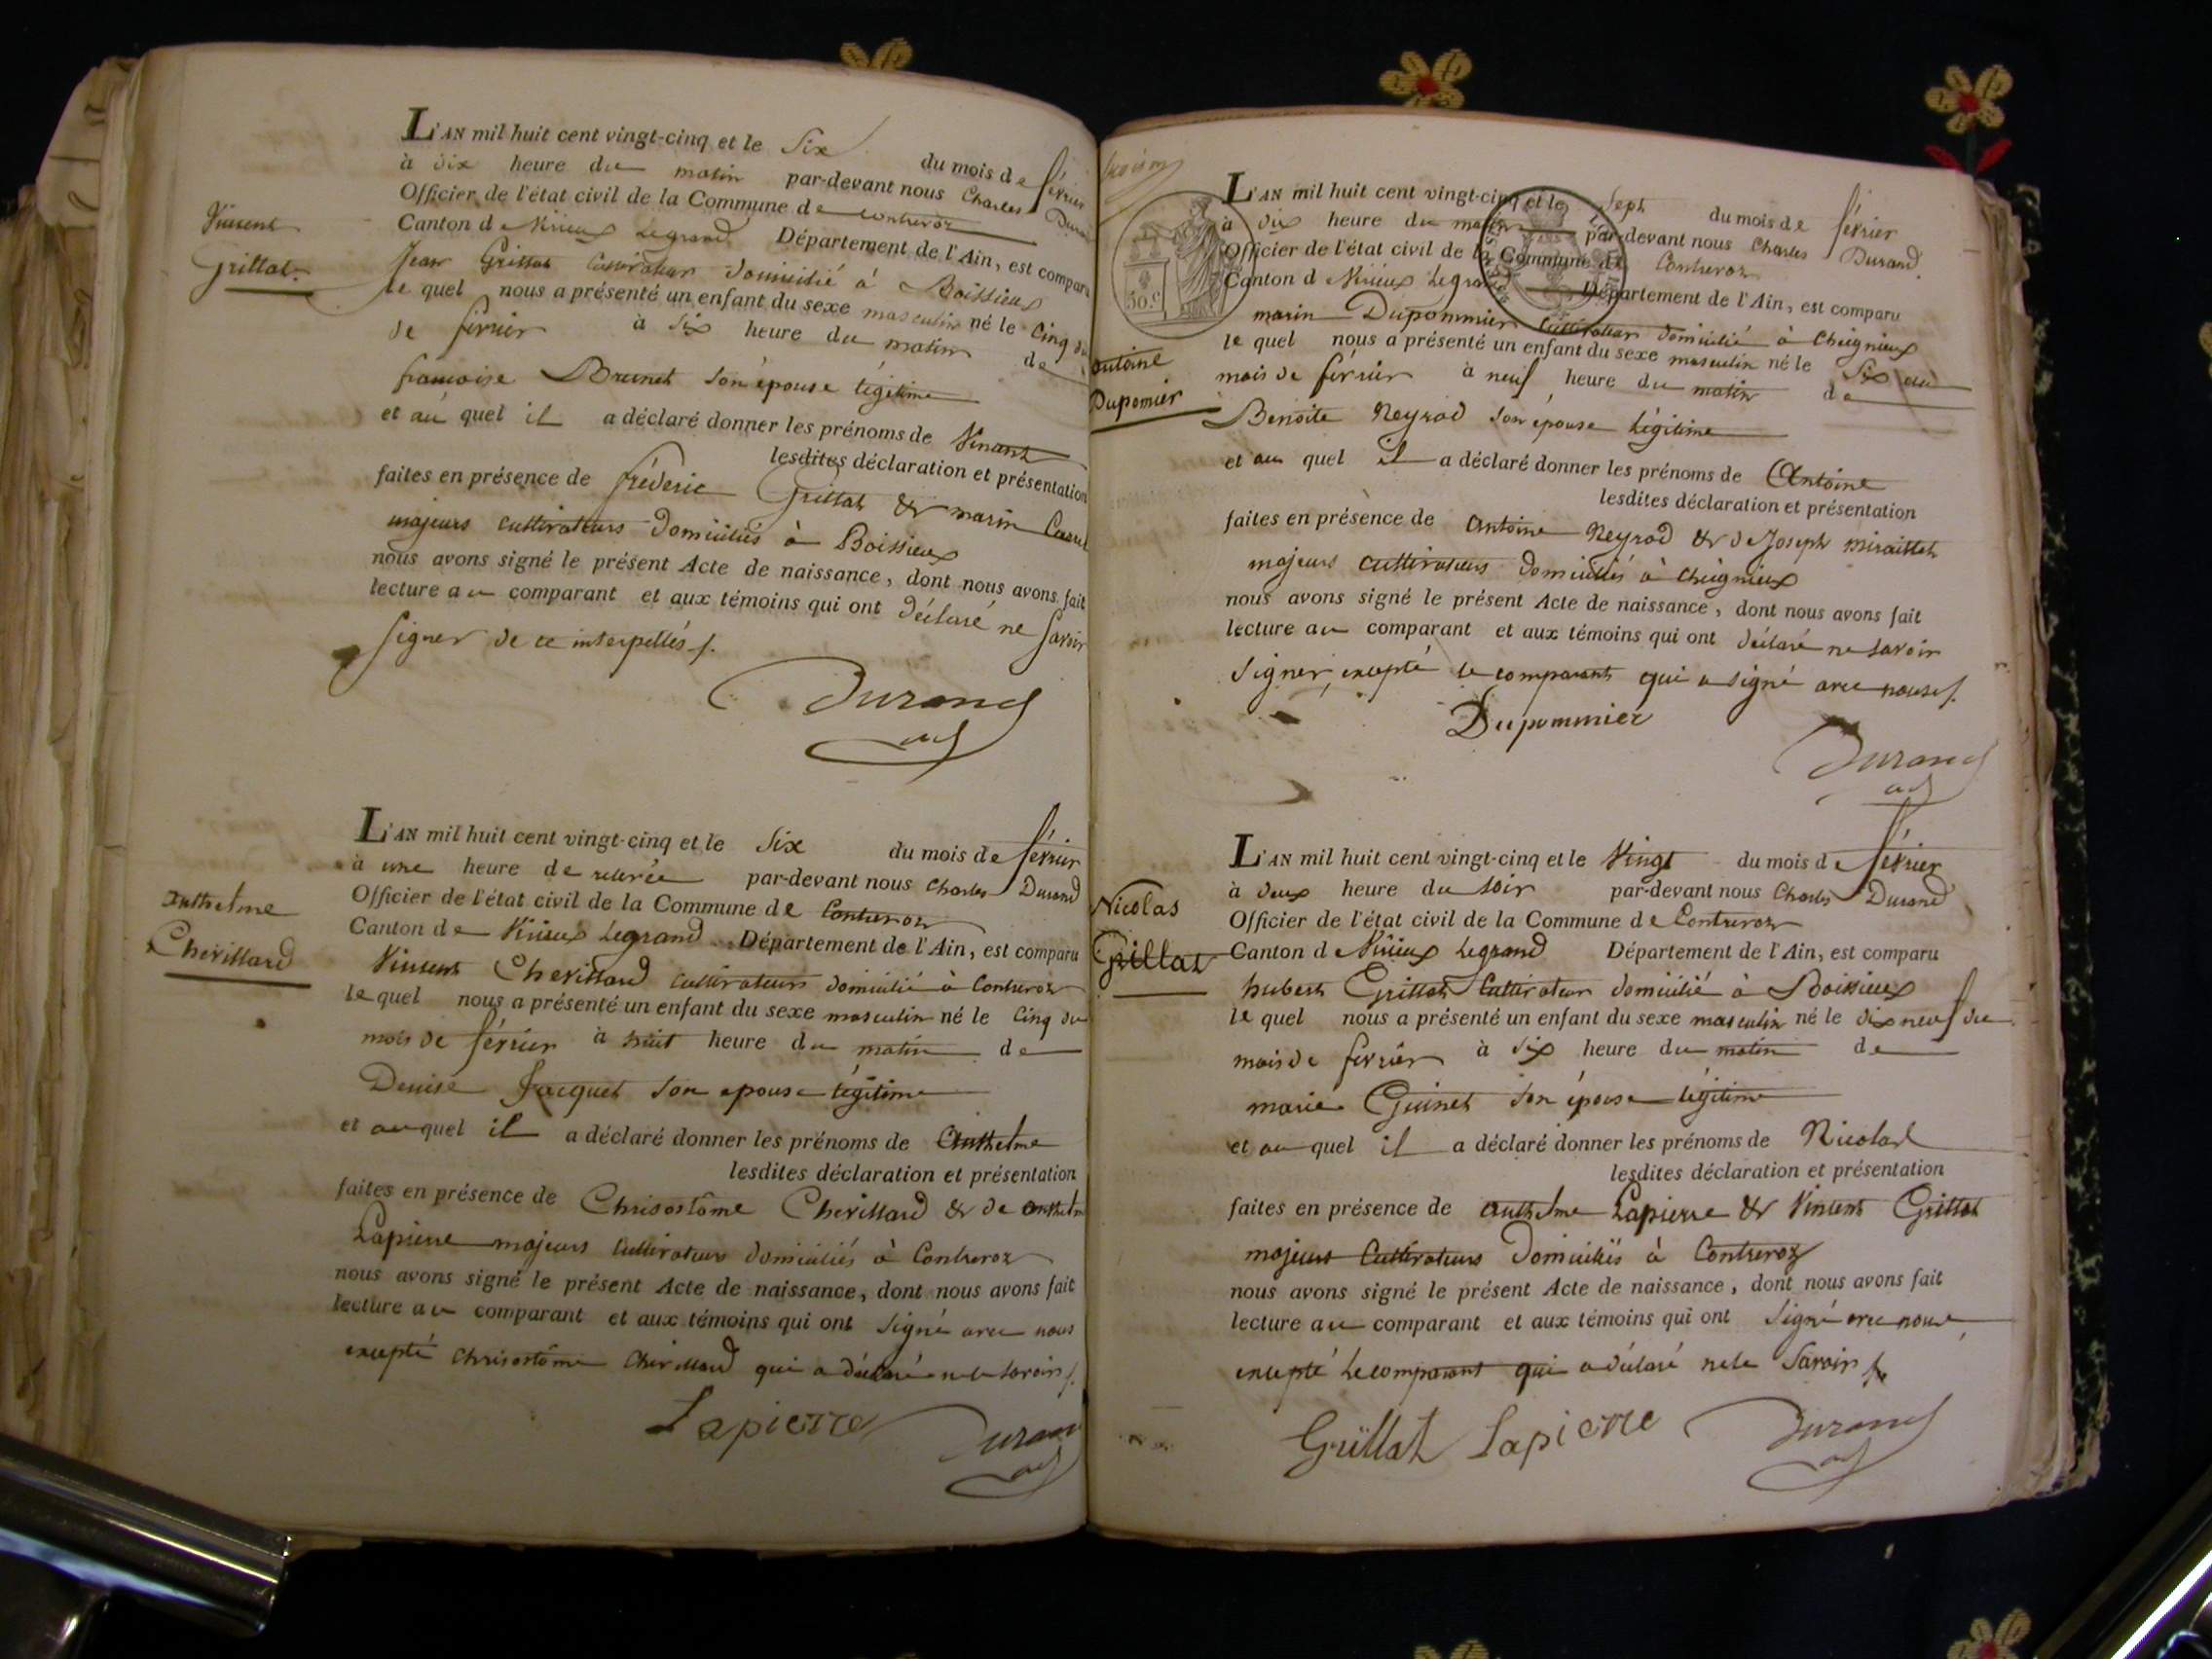 Vincent
Grillat
L'AN mil huit cent vingt-cinq et le Six du mois de février
à dix heure du matin par-devant nous Charles Durand
Officier de l'état civil de la Commune de Contrevoz
Canton d Virieux Legrand Département de l'Ain, est comparu
Jean Grillat Cultivateur domicilié à Boissieux
le quel nous a présenté un enfant du sexe masculin né le Cinq du
de février à six heure du matin de
francoise Brunet son épouse légitime
et au quel il a déclaré donner les prénoms de Vincent
lesdites déclaration et présentation
faites en présence de fréderic Grillat & marin
majeurs cultivateurs domiciliés à Boissieux
nous avons signé le présent Acte de naissance, dont nous avons fait
lecture au comparant et aux témoins qui ont déclaré ne savoir
signer de ce interpellés /.
Durand
Anthelme
Chevillard
L'AN mil huit cent vingt-cinq et le Six du mois de février
à une heure de relevée par-devant nous Charles Durand
Officier de l'état civil de la Commune de Contrevoz
Canton de Virieux Legrand Département de l'Ain, est comparu
Vincent Chevillard cultivateur domicilié à Contrevoz
le quel nous a présenté un enfant du sexe masculin né le Cinq du
mois de février à huit heure du matin de
Denise Jacquet son epouse légitime
et au quel il a déclaré donner les prénoms de Anthelme
lesdites déclaration et présentation
faites en présence de Chrisostôme Chevillard & de anthelme
Lapierre majeurs Cultivateurs domiciliés à Contrevoz
nous avons signé le présent Acte de naissance, dont nous avons fait
lecture au comparant et aux témoins qui ont signé avec nous
excepté Chrisostôme Chevillard qui a déclaré ne le savoir /.
Lapierre Durand
50.c
antoine
Dupomier
L'AN mil huit cent vingt-cinq et le Sept du mois de février
à dix heure du matin par-devant nous Charles Durand
Officier de l'état civil de la Commune de Contrevoz
Canton d Virieux Legrand Département de l'Ain, est comparu
marin Dupommier Cultivateur domicilié à Cheignieux
le quel nous a présenté un enfant du sexe masculin né le Six du
mois de février à neuf heure du matin de
Benoite Neyrod son épouse légitime
et au quel il a déclaré donner les prénoms de Antoine
lesdites déclaration et présentation
faites en présence de Antoine Neyrod & de Joseph miraillet
majeurs cultivateurs domiciliés à Cheignieux
nous avons signé le présent Acte de naissance, dont nous avons fait
lecture au comparant et aux témoins qui ont déclaré ne savoir
signer, excepté le comparant qui a signé avec nous /.
Dupommier
Durand
Nicolas
Grillat
L'AN mil huit cent vingt-cinq et le Vingt du mois d février
à deux heure du soir par-devant nous Charles Durand
Officier de l'état civil de la Commune de Contrevoz
Canton d Virieux Legrand Département de l'Ain, est comparu
hubert Grillat Cultivateur domicilié à Boissieux
le quel nous a présenté un enfant du sexe masculin né le dix neuf du
mois de février à six heure du matin de
marie Guinet son épouse légitime
et au quel il a déclaré donner les prénoms de Nicolas
lesdites déclaration et présentation
faites en présence de anthelme Lapierre & Vincent Grillat
majeurs Cultivateurs domiciliés à Contrevoz
nous avons signé le présent Acte de naissance, dont nous avons fait
lecture au comparant et aux témoins qui ont signé avec nous
excepté le comparant qui a déclaré ne le savoir
Grillat Lapierre Durand